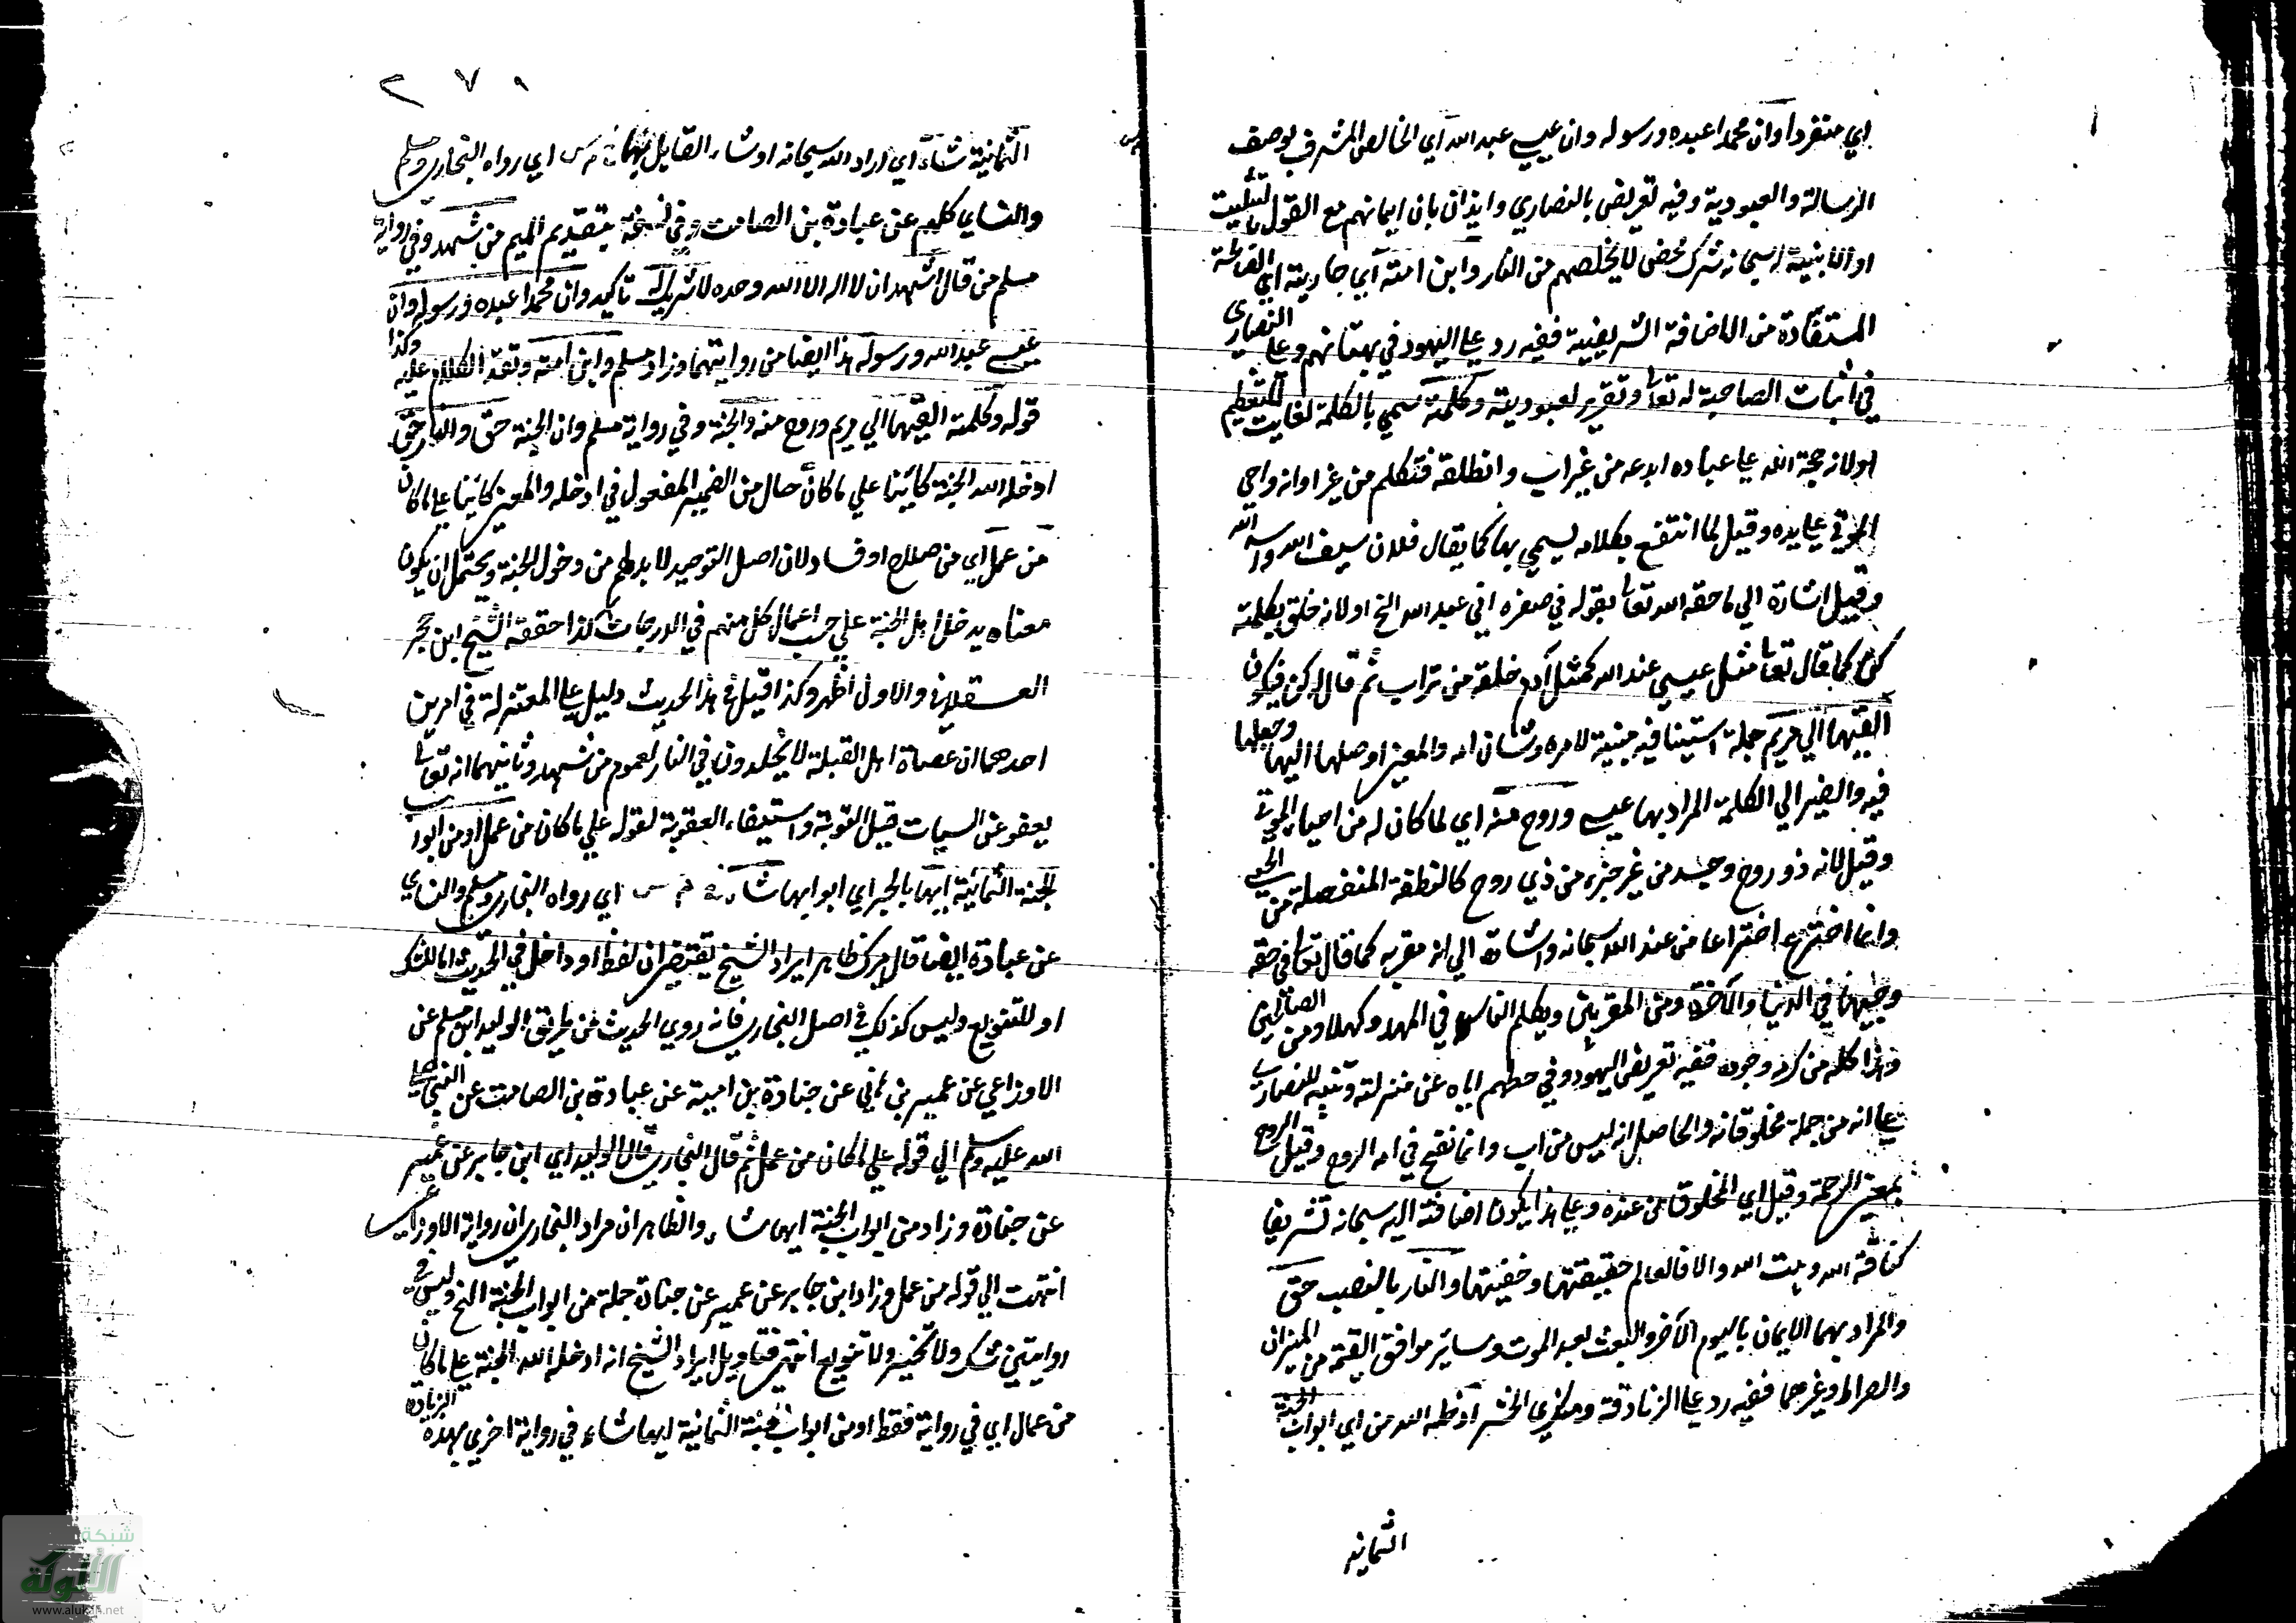 اي منفردا وان محمدا عبده ورسوله وان عيسى عبد الله اي الخالص المشرف بوصف
الرسالة والعبودية وفيه تعريض بالنصاري وايذان بان ايمانهم مع القول بالتثليث
او الابنية له سبحانه شرك محض لا يخلصهم من النار وابن امته اي جاريته اي القانتة
المستفادة من الاضافة التشريفية ففيه رد علي اليهود في بهتانهم وعلي النصارى
في اثبات الصاحبة له تعالى وتقرير لعبوديته وكلمته سمي بالكلمة لغايت للتعظيم
اولانه حجة الله علي عباده ابدعه من غير اب وانطلقه فتكلم من غير اوانه واحى
الموتي علي يده وقيل لما انتفع بكلامه يسمي بها كما يقال فلان سيف الله واسد الله
وقيل اشارة الي ما حقه الله تعالى بقوله في صغره اني عبد الله الخ اولانه خلق بكلمته
كن كما قال تعالى مثل عيسي عند الله كمثل آدم خلقه من تراب ثم قال له كن فيكون
القيها الي مريم جملة استينافيه مبنية لامره وشان امه والمعنى اوصلها اليها وجعلها
فيه والضمير الي الكلمة المراد بها عيسى وروح منه اي لما كان له من احياء الموتى
وقيل لانه ذو روح وجسد من غير جزء من ذي روح كالنطفة المنفصلة من الحي
وانما اخترع اختراعا من عند الله سبحانه واشارة الي انه مقربه كما قال تعالى في حقه
وجيها في الدنيا والآخرة ومن المقربين ويكلم الناس في المهد وكهلا ومن الصالحين
وهذا كله من كرم وجوده ففيه تعريض اليهود وفي حطهم اياه عن منزلته وتنبيه للنصارى
علي انه من جملة مخلوقاته والحاصل انه ليس من اب وانما نفخ في امه الروح وقيل الروح
بمعنى الرحمة وقيل اي المخلوق من عنده وعلي هذا يكون اضافته اليه سبحانه تشريفا
كناقة الله وبيت الله والا فالعالم حقيقتها وخفيتها والنار بالنصب حق
والمراد بهما الايمان باليوم الآخر والبعث بعد الموت وسائر موافق القيمة من الميزان
والصراط وغيرهما ففيه رد علي الزنادقة ومنكري الحشر ادخله الله من اي ابواب الجنة
الثمانية
٢٧٩
الثمانية شاء اي اراد الله سبحانه او شاء القايل بها خ م س اي رواه البخاري ومسلم
والنساي كلهم عن عبادة بن الصامت وفي نسخة بتقديم الميم من شهد وفي رواية
مسلم من قال اشهد ان لا اله الا الله وحده لا شريك له تاكيد وان محمدا عبده ورسوله وان
عيسى عبد الله ورسوله هذا ايضا من روايتهما وزاد مسلم وابن امته وتقدم الكلام عليه وكذا
قوله وكلمته القيها الي مريم وروح منه والجنة وفي رواية مسلم وان الجنة حق والنار حق
ادخله الله الجنة كائنا علي ما كان حال من الضمير المفعول في ادخله والمعنى كائنا علي ما كان
من عمل اي من صلاح او فساد لان اصل التوحيد لا بد لهم من دخول الجنة ويحتمل ان يكون
معناه يدخل اهل الجنة علي حسب اعمال كل منهم في الدرجات كذا حققه الشيخ ابن حجر
العسقلاني والاول اظهر وكذا قيل في هذا الحديث دليل علي المعتزلة في امرين
احدهما ان عصاة اهل القبلة لا يخلدون في النار لعموم من شهد وثانيهما انه تعالى
يعفو عن السيات قبل التوبة واستيفاء العقوبة لقوله علي ما كان من عمل او من ابواب
الجنة الثمانية ايها بالجر اي ابوابها شاء خ م س اي رواه البخاري ومسلم والنساي
عن عبادة ايضا قال ميرك ظاهر ايراد الشيخ يقتضى ان لفظ او داخل في الحديث اما للشك
او للتنويع وليس كذلك في اصل البخاري فانه روي الحديث من طريق الوليد ابن مسلم عن
الاوزاعي عن عمير بن هاني عن جنادة بن امية عن عبادة بن الصامت عن النبي صلى
الله عليه وسلم الي قوله علي ما كان من عمل ثم قال البخاري قال الوليد اي ابن جابر عن عمير
عن جنادة وزاد من ابواب الجنة ايها شاء والظاهر ان مراد البخاري ان رواية الاوزاعى
انتهت الي قوله من عمل وزاد ابن جابر عن عمير عن جنادة جملة من ابواب الجنة الخ وليس في
روايتين شك ولا تخيير ولا تنويع انتهى فتاويل ايراد الشيخ انه ادخله الله الجنة علي ما كان
من عمال اي في رواية فقط او من ابواب الجنة الثمانية ايها شاء في رواية اخري بهذه الزيادة
شبكة
الألوكة
www.alukah.net